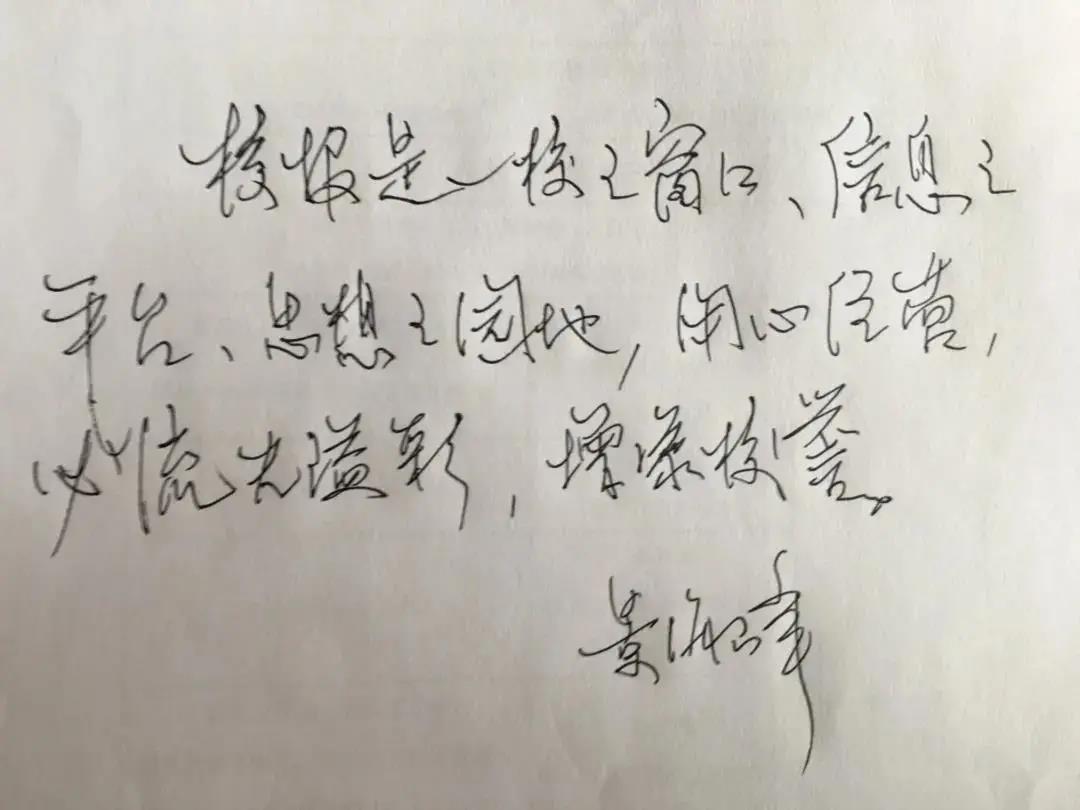 校报是一校之窗口、信息之
平台、思想之园地，用心经营，
必流光溢彩，增添校誉。
景海峰